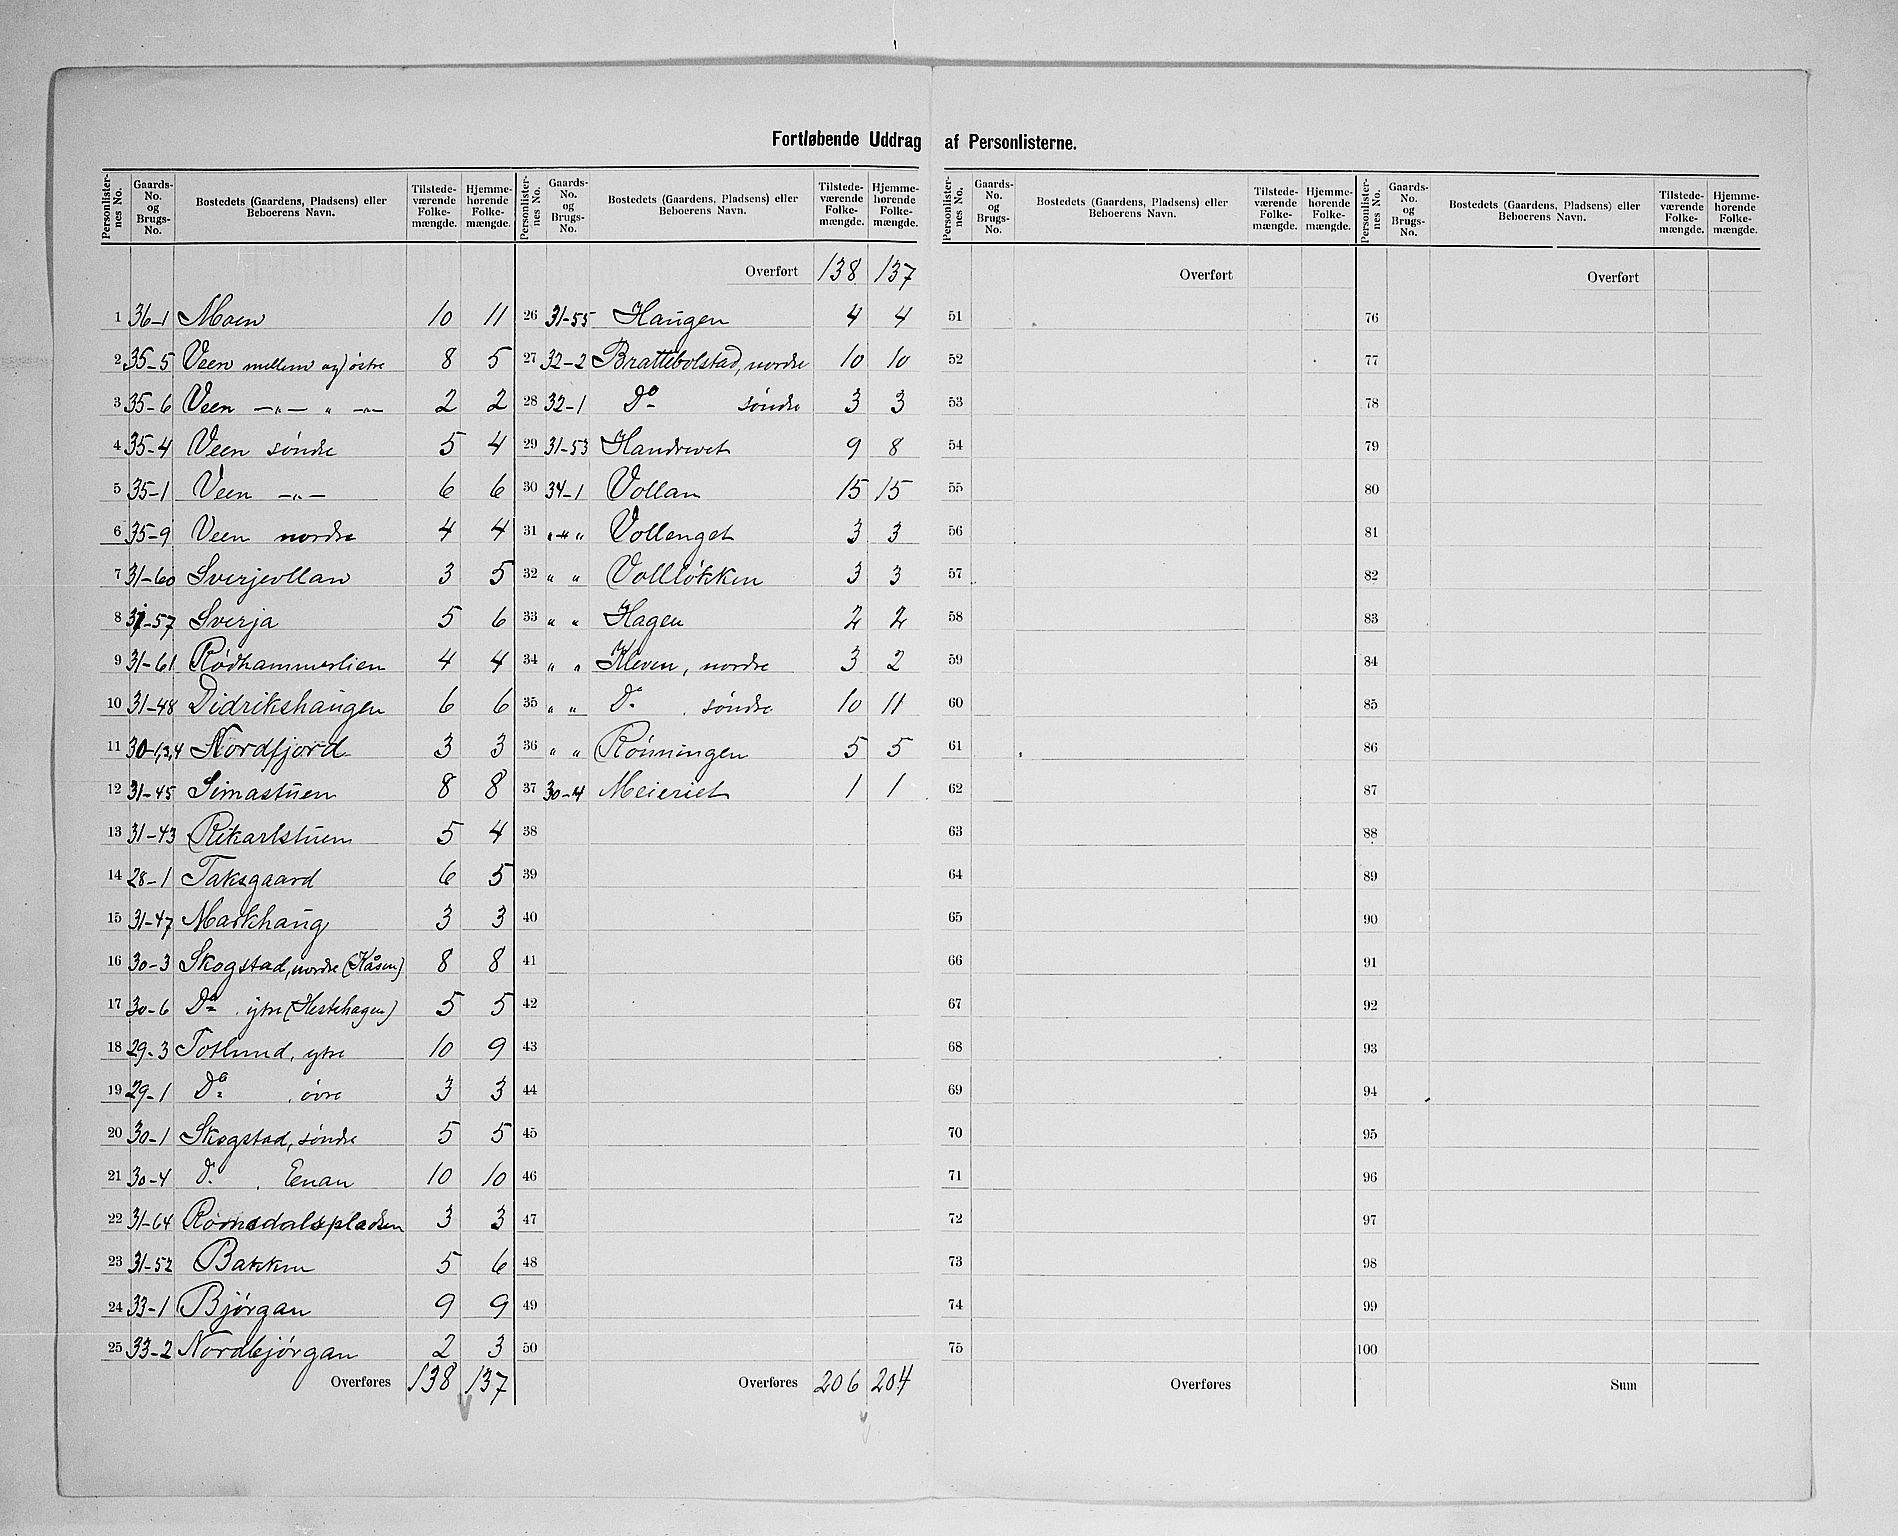 Fortløbende Uddrag af Personlisterne.
Personlister-nes No. Gaards-No. og Brugs-No. Bostedets (Gaardens, Pladsens) eller Beboerens Navn. Tilstede-værende Folke-mængde. Hjemme-hørende Folke-mængde.
1 36-1 Moen 10 11
2 35-5 Veen mellem og østre 8 5
3 35-6 Veen —"— " —"— 2 2
4 35-4 Veen søndre 5 4
5 35-1 Veen —"— 6 6
6 35-9 Veen nordre 4 4
7 31-60 Sverjevollan 3 5
8 31-57 Sverja 5 6
9 31-61 Rødhammerlien 4 4
10 31-48 Didrikshaugen 6 6
11 30-1,2,4 Nordfjord 3 3
12 31-45 Simastuen 8 8
13 31-43 Rikarlstuen 5 4
14 28-1 Taksgaard 6 5
15 31-47 Markhaug 3 3
16 30-3 Skogstad, nordre (Kåsen) 8 8
17 30-6 Do ytre (Hestehagen) 5 5
18 29-3 Totlund, ytre 10 9
19 29-1 Do øvre 3 3
20 30-1 Skogstad, søndre 5 5
21 30-4 Do Enan 10 10
22 31-64 3 3
23 31-52 Bakken 5 6
24 33-1 Bjørgan 9 9
25 33-2 Nordbjørgan 2 3
Overføres 138 137
Personlister-nes No. Gaards-No. og Brugs-No. Bostedets (Gaardens, Pladsens) eller Beboerens Navn. Tilstede-værende Folke-mængde. Hjemme-hørende Folke-mængde.
Overført 138 137
26 31-55 Haugen 4 4
27 32-2 Brattebolstad, nordre 10 10
28 32-1 Do søndre 3 3
29 31-53 9 8
30 34-1 Vollan 15 15
31 " " Vollenget 3 3
32 " " Volløkken 3 3
33 " " Hagen 2 2
34 " " Kleven, nordre 3 2
35 " " Do søndre 10 11
36 " " Rønningen 5 5
37 30-4 Meieriet 1 1
38
39
40
41
42
43
44
45
46
47
48
49
50
Overføres 206 204
Personlister-nes No. Gaards-No. og Brugs-No. Bostedets (Gaardens, Pladsens) eller Beboerens Navn. Tilstede-værende Folke-mængde. Hjemme-hørende Folke-mængde.
Overført
51
52
53
54
55
56
57
58
59
60
61
62
63
64
65
66
67
68
69
70
71
72
73
74
75
Overføres
Personlister-nes No. Gaards-No. og Brugs-No. Bostedets (Gaardens, Pladsens) eller Beboerens Navn. Tilstede-værende Folke-mængde. Hjemme-hørende Folke-mængde.
Overført
76
77
78
79
80
81
82
83
84
85
86
87
88
89
90
91
92
93
94
95
96
97
98
99
100
Sum